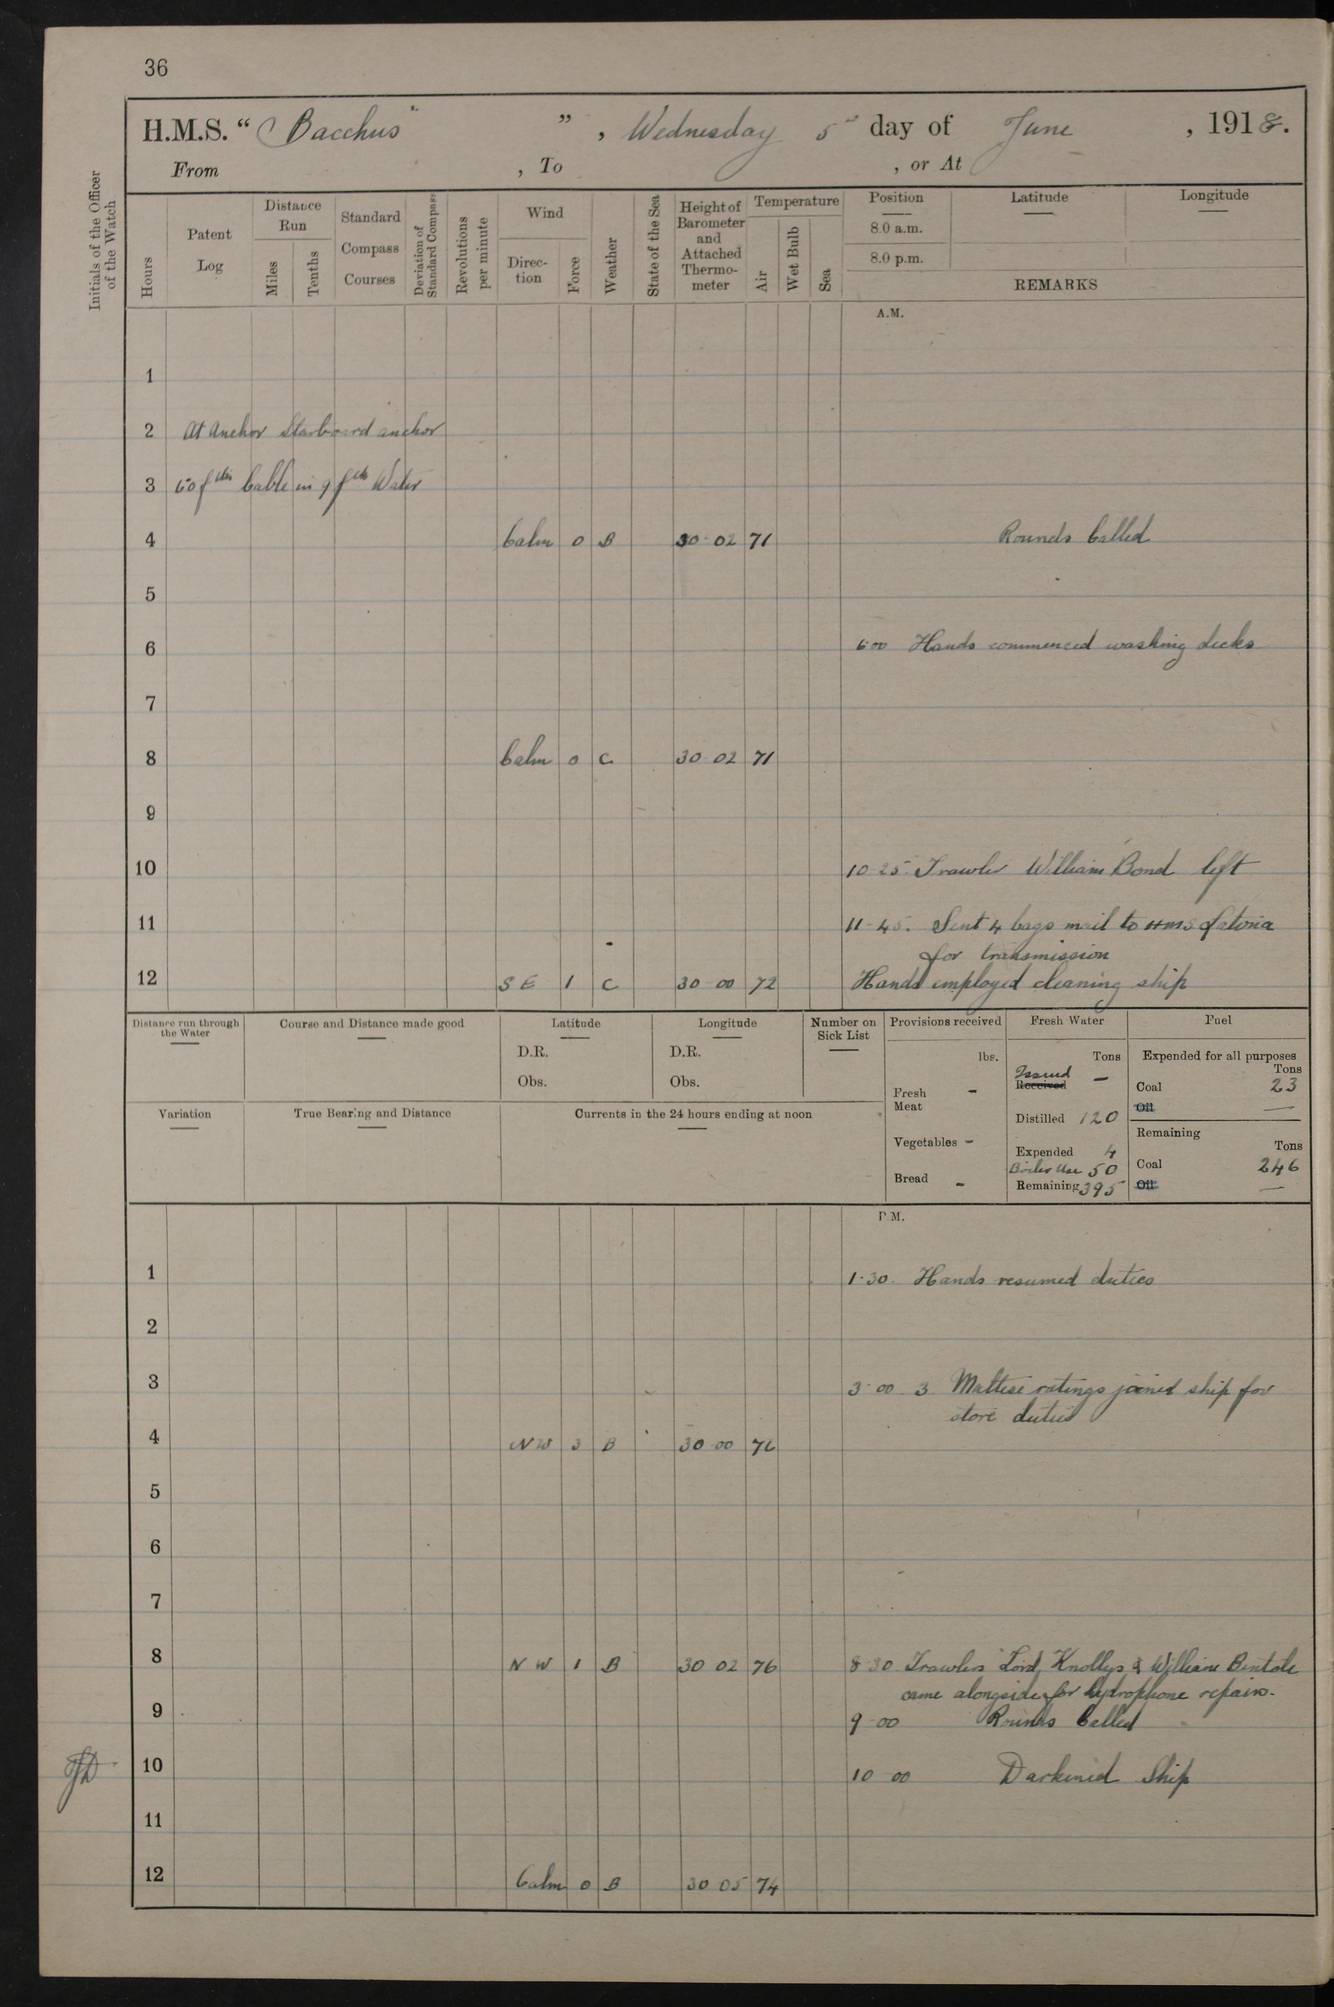 36
H.M.S. “ Bacchus ” , Wednesday 5th day of June , 1918.
From , To , or At
Initials of the Officer of the Watch
Hours
Patent Log
Distance Run
Miles
Tenths
Standard Compass Courses
Deviation of Standard Compass
Revolutions per minute
Wind
Direc-tion
Force
Weather
State of the Sea
Height of Barometer and Attached Thermo-meter
Temperature
Air
Wet Bulb
Sea
Position
Latitude
Longitude
8.0 a.m.
8.0 p.m.
REMARKS
A.M.
1
2 At Anchor Starboard anchor
3 60 fths Cable in 9 fths Water
4 Calm 0 B 30·02 71 Rounds Called
5
6 6·00 Hands commenced washing decks
7
8 Calm 0 C 30·02 71
9
10 10·25 Trawler William Bond left
11 11·45. Sent 4 bags mail to HMS
for transmission
12 SE 1 C 30·00 72 Hands employed cleaning ship
Distance run through the Water
Course and Distance made good
Latitude
D.R.
Obs.
Longitude
D.R.
Obs.
Number on Sick List
Provisions received
lbs.
Fresh Meat -
Vegetables -
Bread -
Fresh Water
Tons
Issued -
Received
Distilled 120
Expended 4
Boiler Use 50
Remaining 395
Fuel
Expended for all purposes
Tons
Coal 23
Oil —
Remaining
Tons
Coal 246
Oil —
Variation
True Bearing and Distance
Currents in the 24 hours ending at noon
P.M.
1 1·30 Hands resumed duties
2
3 3·00 3 Maltese ratings joined ship for
store duties
4 NW 3 B 30·00 76
5
6
7
8 NW 1 B 30 02 76 8·30 Trawlers Lord Knollys & William
came alongside for hydrophone repairs.
9 9·00 Rounds Called
10 10·00 Darkened Ship
11
12 Calm 0 B 30 05 74